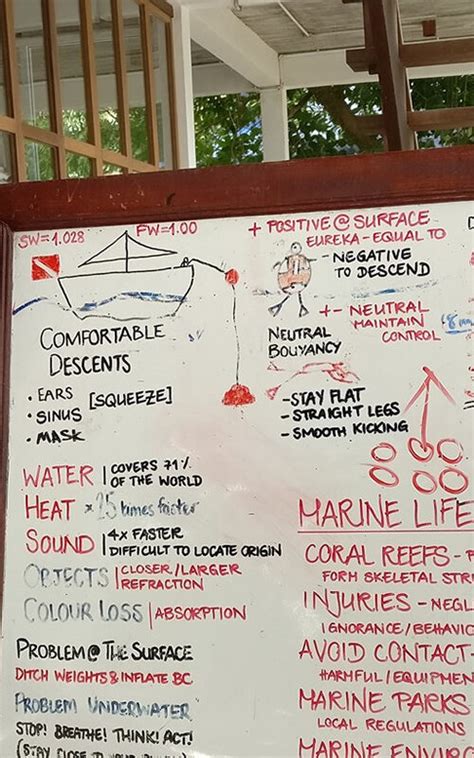 SW=1.028
FW=1.00
+ POSITIVE @ SURFACE
EUREKA - EQUAL TO
- NEGATIVE
TO DESCEND
+- NEUTRAL
MAINTAIN
CONTROL
NEUTRAL
BOUYANCY
- STAY FLAT
- STRAIGHT LEGS
- SMOOTH KICKING
COMFORTABLE
DESCENTS
• EARS
• SINUS
• MASK
[SQUEEZE]
WATER | COVERS 71%
OF THE WORLD
HEAT × 25 times faster
SOUND | 4X FASTER
DIFFICULT TO LOCATE ORIGIN
OBJECTS | CLOSER/LARGER
REFRACTION
COLOUR LOSS | ABSORPTION
PROBLEM @ THE SURFACE
DITCH WEIGHTS & INFLATE BC
PROBLEM UNDERWATER
STOP! BREATHE! THINK! ACT!
(STAY CLOSE TO YOUR
MARINE LIFE
CORAL REEFS -
FORM SKELETAL STR
INJURIES - NEGL
IGNORANCE/BEHAVIO
AVOID CONTACT -
HARMFUL/EQUIPMEN
MARINE PARKS
LOCAL REGULATIONS
MARINE ENVIRO